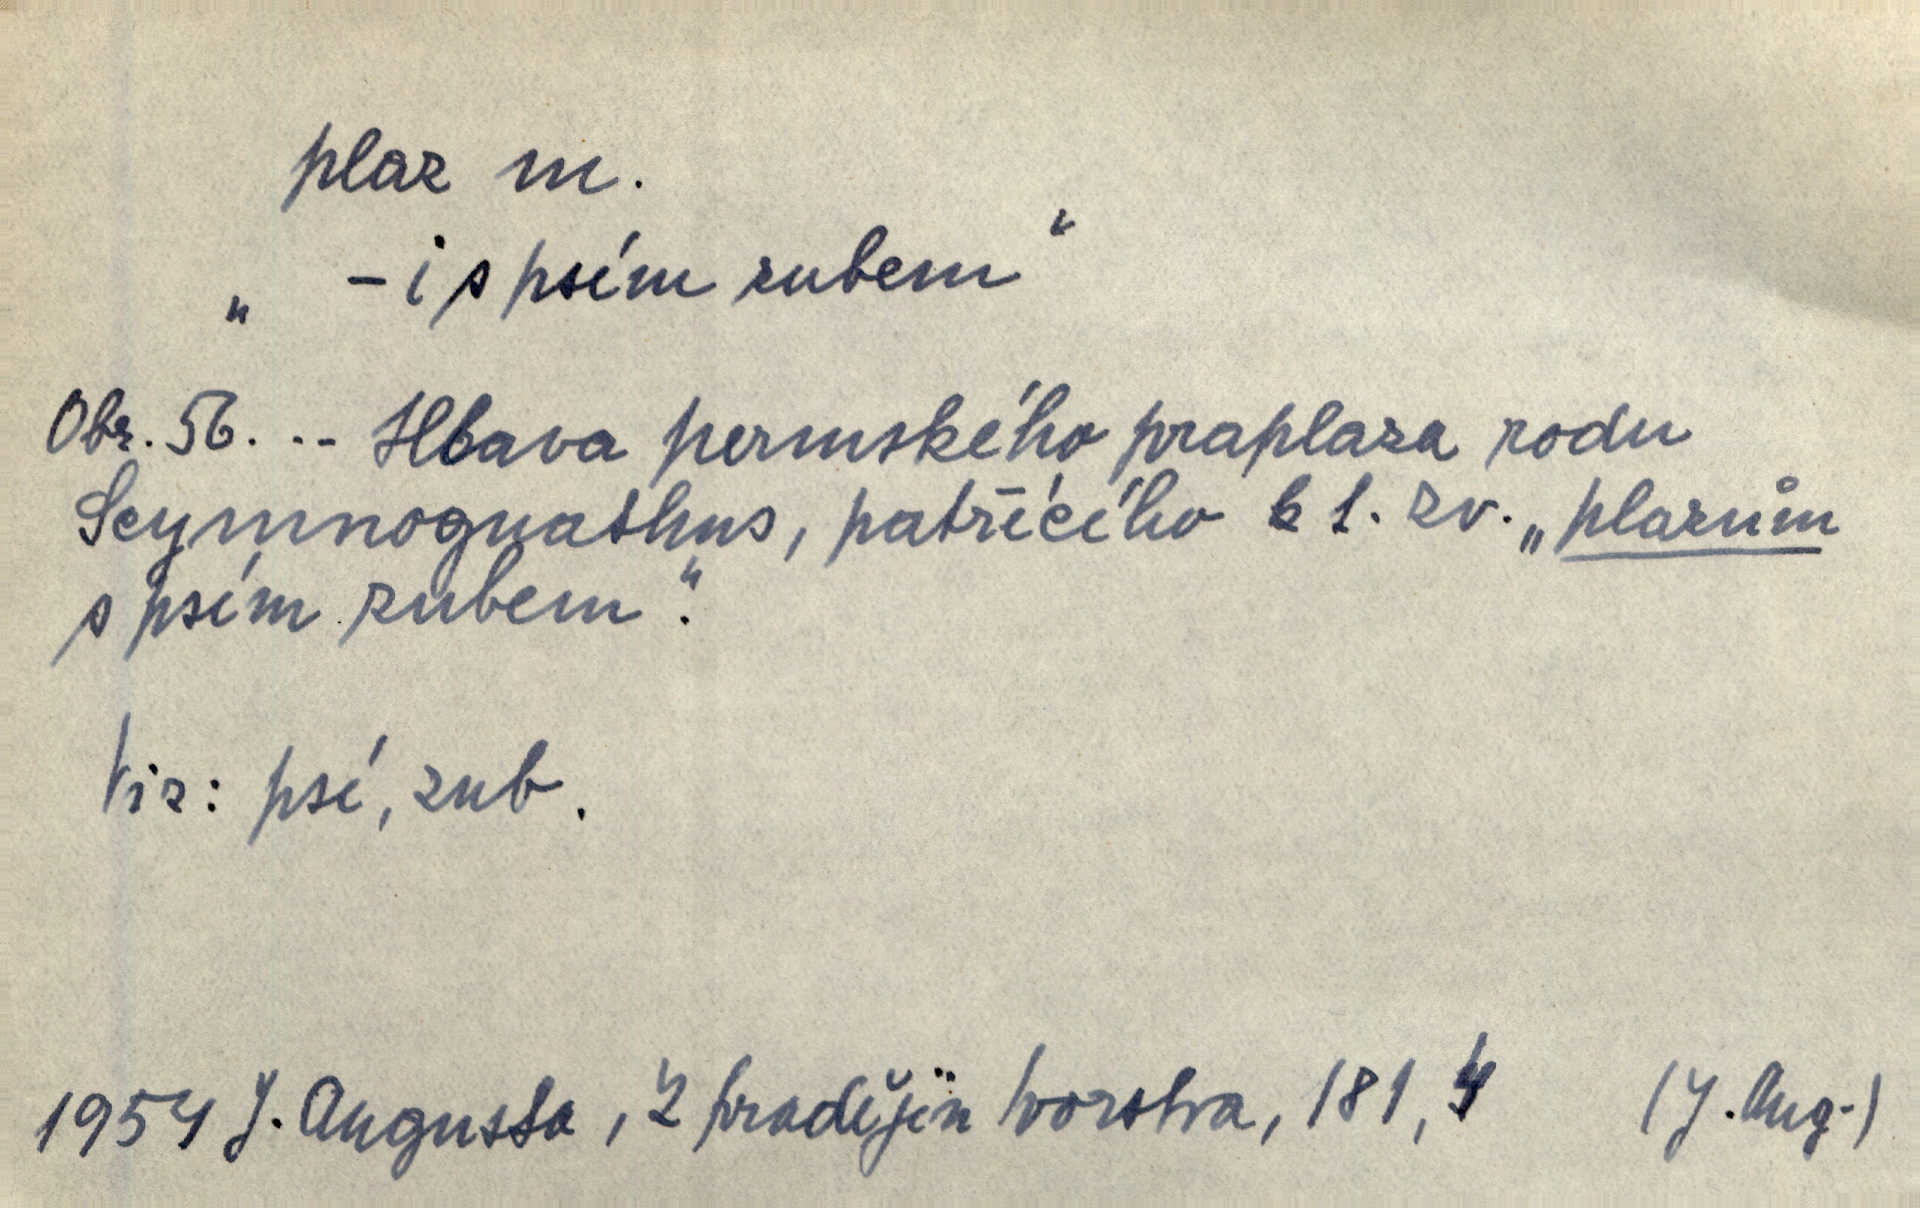 plaz m.
„ – i s psím zubem"
Obr. 56. .. - Hlava permského praplaza rodu
Scymnognathus, patřícího k t. zv. „plazům
s psím zubem".
Viz: psí, zub.
1954 J. Augusta, Z pradějin tvorstva, 181, 4 (J. Aug.)